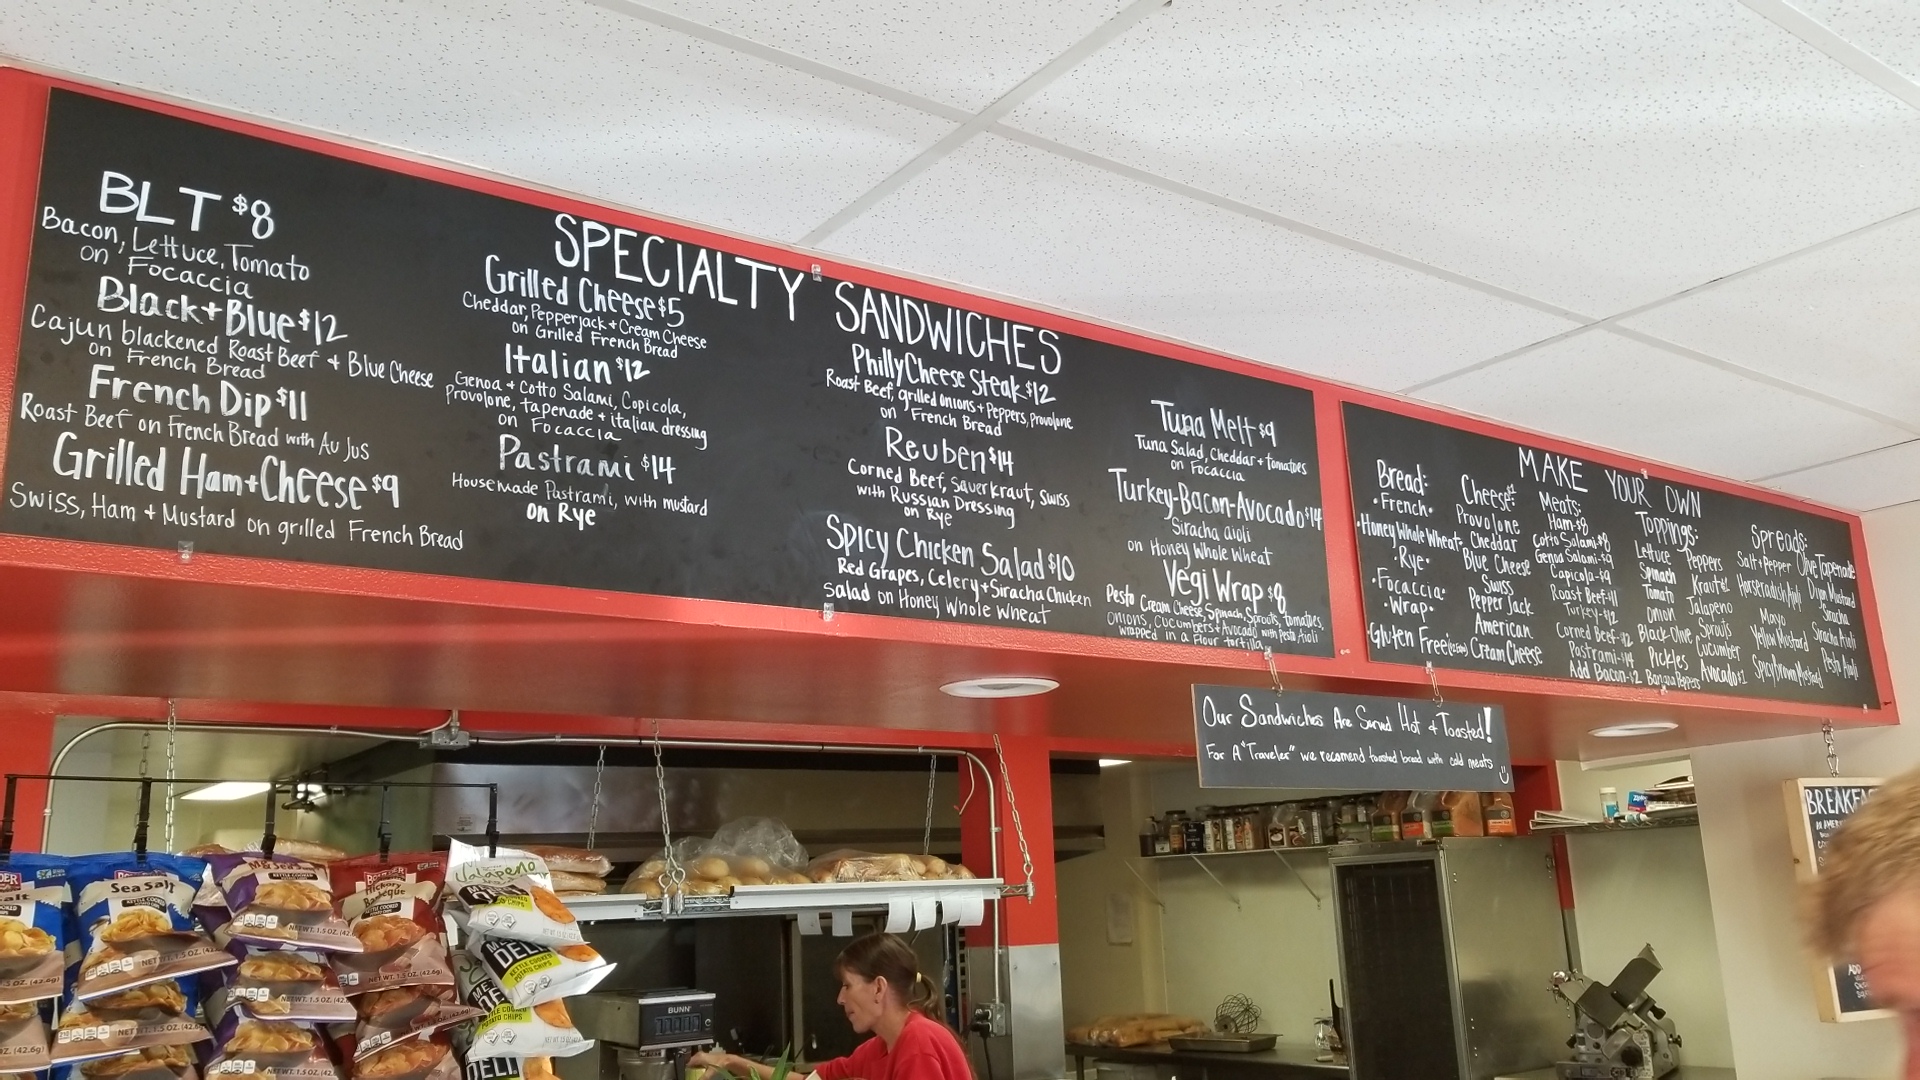 BLT $8
Bacon, Lettuce, Tomato
on Focaccia
Black+Blue $12
Cajun blackened Roast Beef + Blue Cheese
on French Bread
French Dip $11
Roast Beef on French Bread with Au Jus
Grilled Ham+Cheese $9
Swiss, Ham + Mustard on grilled French Bread
SPECIALTY SANDWICHES
Grilled Cheese $5
Cheddar, Pepperjack + Cream Cheese
on Grilled French Bread
Italian $12
Genoa + Cotto Salami, Copicola,
Provolone, tapenade + italian dressing
on Focaccia
Pastrami $14
Housemade Pastrami, with mustard
on Rye
Philly Cheese Steak $12
Roast Beef, grilled onions + Peppers, Provolone
on French Bread
Reuben $14
Corned Beef, Sauerkraut, Swiss
with Russian Dressing
on Rye
Spicy Chicken Salad $10
Red Grapes, Celery + Siracha Chicken
Salad on Honey Whole Wheat
Tuna Melt $9
Tuna Salad, Cheddar + Tomatoes
on Focaccia
Turkey-Bacon-Avocado $14
Siracha aioli
on Honey Whole Wheat
Vegi Wrap $8
Pesto Cream Cheese, Spinach, Sprouts, tomatoes,
onions, cucumbers + Avocado with Pesto Aioli
wrapped in a flour tortilla
MAKE YOUR OWN
Bread:
•French•
•Honey Whole Wheat•
•Rye•
•Focaccia•
•Wrap•
•Gluten Free
Cheese: $1
Provolone
Cheddar
Blue Cheese
Swiss
Pepper Jack
American
Cream Cheese
Meats:
Ham-$8
Cotto Salami-$8
Genoa Salami-$9
Capicola-$9
Roast Beef-$11
Turkey-$12
Corned Beef-$12
Pastrami-$14
Add Bacon-$2
Toppings:
Lettuce
Spinach
Tomato
Onion
Black Olive
Pickles
Banana Peppers
Peppers
Kraut $1
Jalapeno
Sprouts
Cucumber
Avocado $1
Spreads:
Salt + Pepper
Horseradish Aioli
Mayo
Yellow Mustard
Spicy Brown Mustard
Olive Tapenade
Dijon Mustard
Siracha
Siracha Aioli
Pesto Aioli
Our Sandwiches Are Served Hot + Toasted!
For A "Traveler" we recomend toasted bread with cold meats
BREAKFAS
Sea Salt
KETTLE COOKED
POTATO CHIPS
NET WT. 1.5 OZ. (42.6g)
Hickory
Barbeque
NET WT. 1.5 OZ. (42.6g)
Jalapeno
DELI
KETTLE COOKED
POTATO CHIPS
BUNN